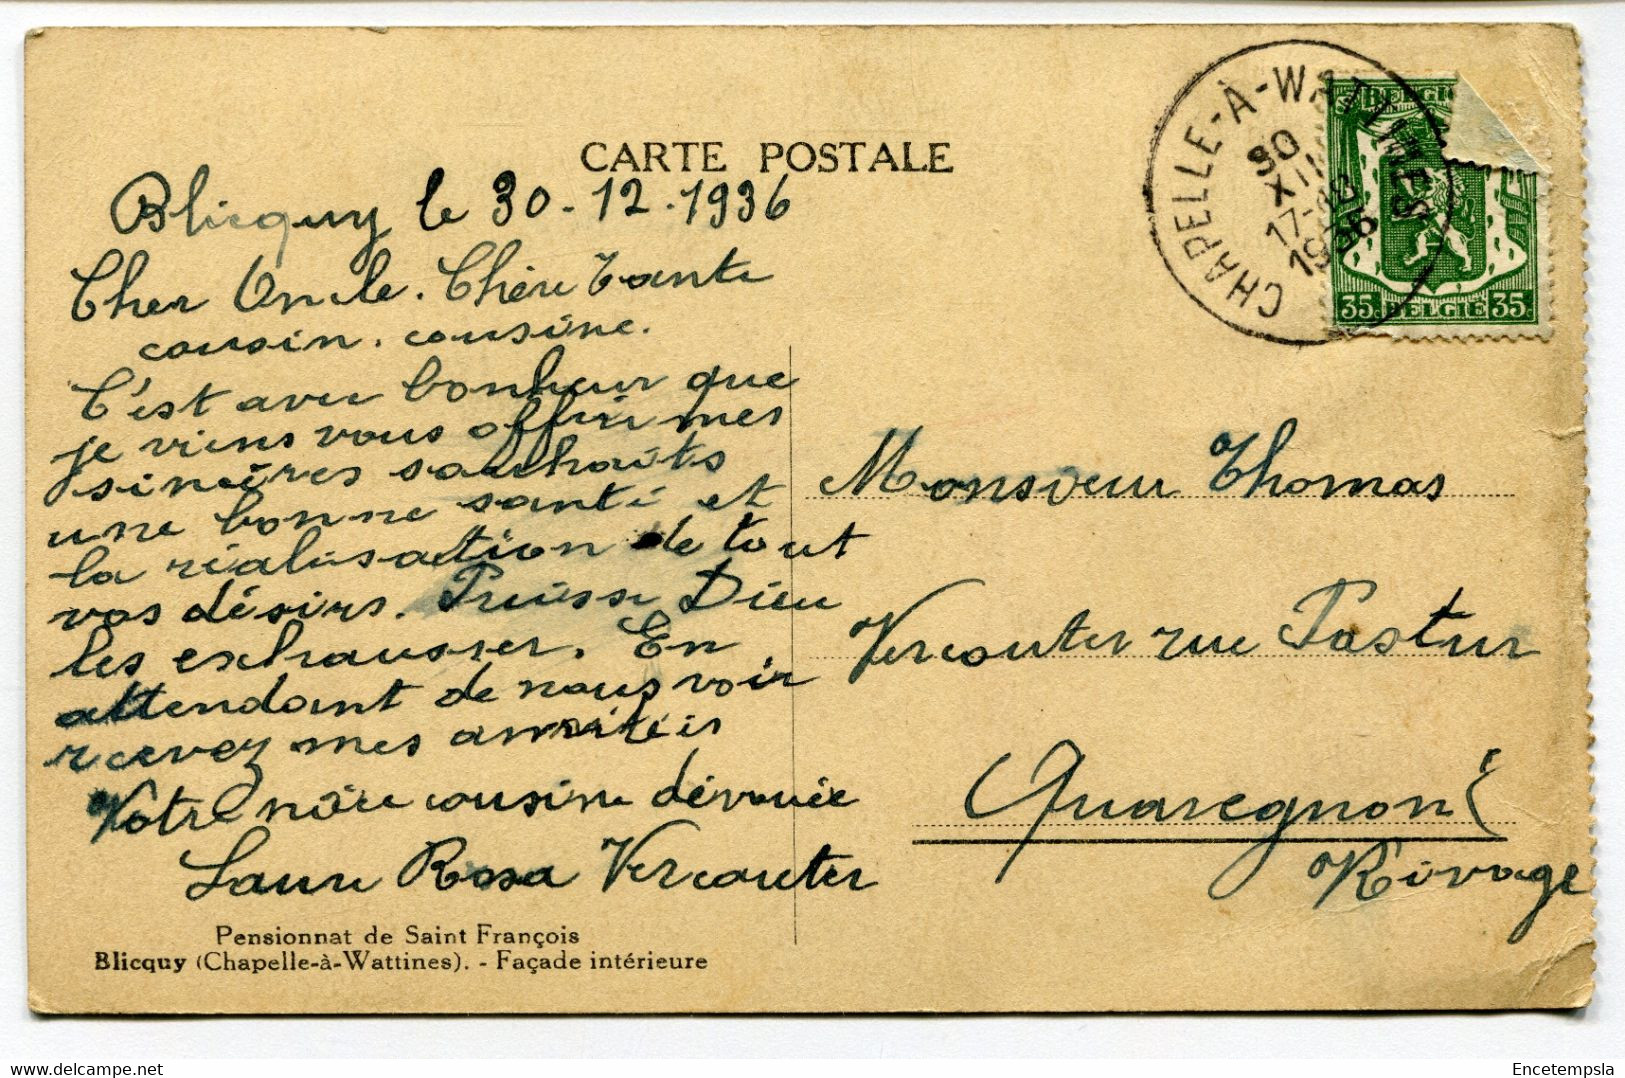 CARTE POSTALE
Blicquy le 30-12-1936
Cher Oncle. Chère Tante
cousin. cousine.
C'est avec bonheur que
je viens vous offrir mes
sincères souhaits
une bonne santé et
la réalisation de tout
vos désirs. Puisse Dieu
les exhausser. En
attendant de nous voir
recevez mes amitiés
Votre nièce cousine dévouée
Laure Rosa Vercouter
Pensionnat de Saint François
Blicquy (Chapelle-à-Wattines). - Façade intérieure
CHAPELLE-À-WATTINES
30
XII
17-18
1936
BELGI
35c BELGIE 35c
Monsieur Thomas
Vercouter rue Pastur
Quaregnon
Rivage
Encetempsla